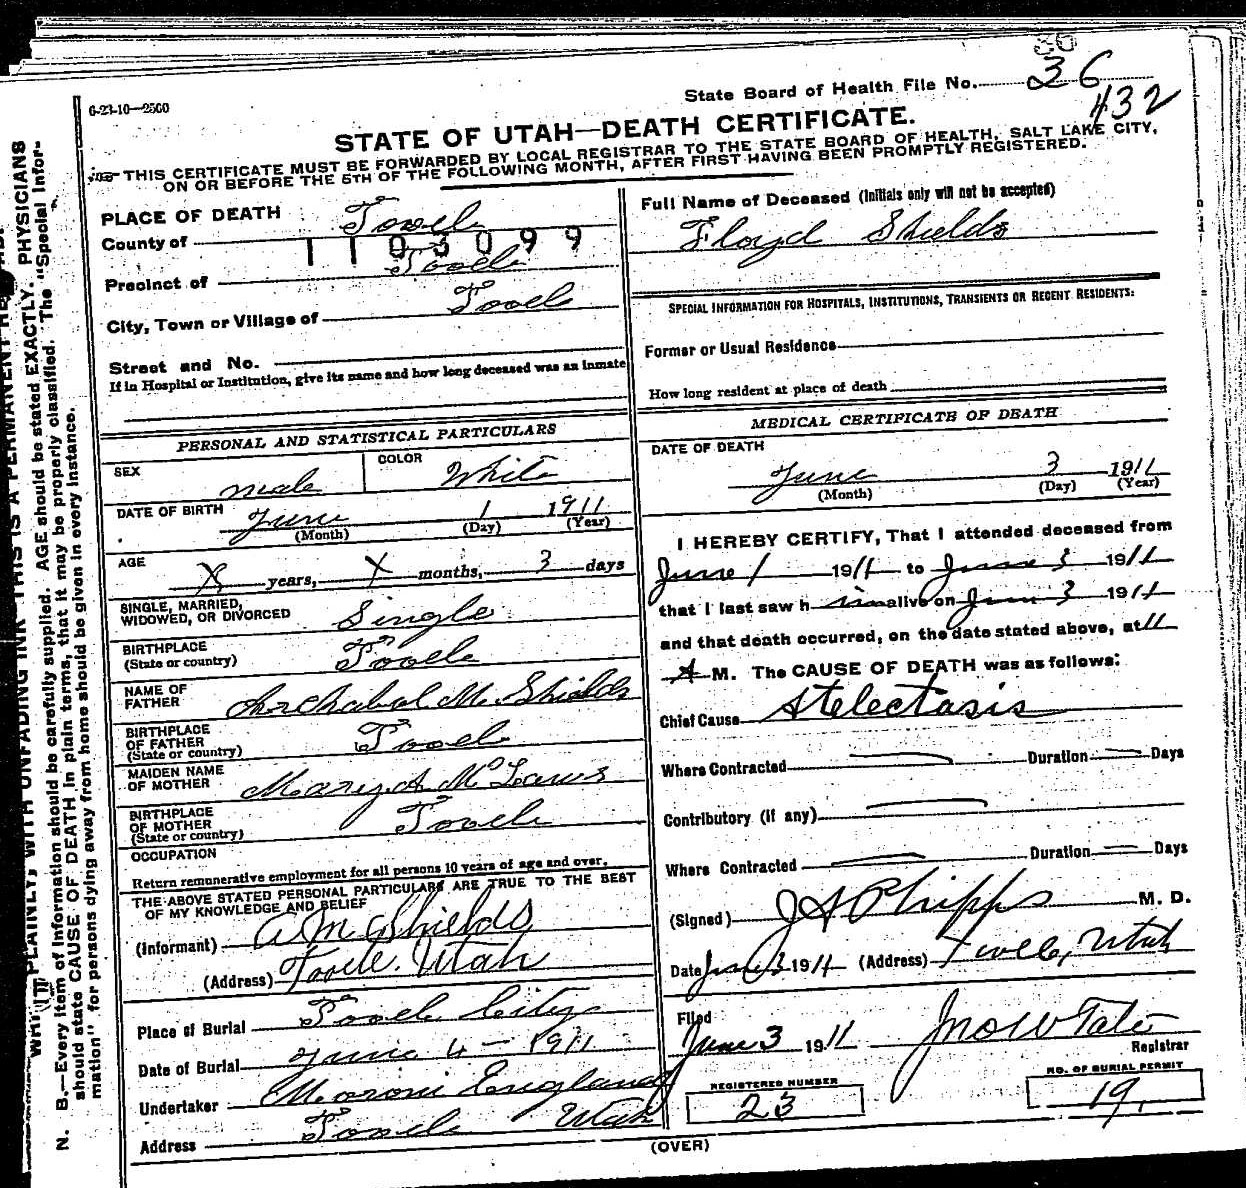 6-23-10—2500
State Board of Health File No. 36
432
STATE OF UTAH—DEATH CERTIFICATE.
THIS CERTIFICATE MUST BE FORWARDED BY LOCAL REGISTRAR TO THE STATE BOARD OF HEALTH, SALT LAKE CITY,
ON OR BEFORE THE 5TH OF THE FOLLOWING MONTH, AFTER FIRST HAVING BEEN PROMPTLY REGISTERED.
PLACE OF DEATH
County of Tooele
1103099
Precinct of Tooele
City, Town or Village of Tooele
Street and No.
If in Hospital or Institution, give its name and how long deceased was an inmate
PERSONAL AND STATISTICAL PARTICULARS
SEX male COLOR White
DATE OF BIRTH June 1 1911
(Month) (Day) (Year)
AGE X years, X months, 3 days
SINGLE, MARRIED,
WIDOWED, OR DIVORCED Single
BIRTHPLACE
(State or country) Tooele
NAME OF
FATHER Archabal M. Shields
BIRTHPLACE
OF FATHER
(State or country) Tooele
MAIDEN NAME
OF MOTHER Mary A McLaws
BIRTHPLACE
OF MOTHER
(State or country) Tooele
OCCUPATION
Return remunerative employment for all persons 10 years of age and over,
THE ABOVE STATED PERSONAL PARTICULARS ARE TRUE TO THE BEST
OF MY KNOWLEDGE AND BELIEF
(Informant) A M Shields
(Address) Tooele. Utah
Place of Burial Tooele City
Date of Burial June 4 - 1911
Undertaker Moroni England
Address Tooele Utah
Full Name of Deceased (Initials only will not be accepted)
Floyd Shields
SPECIAL INFORMATION FOR HOSPITALS, INSTITUTIONS, TRANSIENTS OR RECENT RESIDENTS:
Former or Usual Residence
How long resident at place of death
MEDICAL CERTIFICATE OF DEATH
DATE OF DEATH
June 3 1911
(Month) (Day) (Year)
I HEREBY CERTIFY, That I attended deceased from
June 1 1911 to June 3 1911
that I last saw him alive on June 3 1911
and that death occurred, on the date stated above, at 11
A M. The CAUSE OF DEATH was as follows:
Chief Cause Atelectasis
Where Contracted — Duration — Days
Contributory (if any) —
Where Contracted — Duration — Days
(Signed) J A Phipps M. D.
Date June 3 1911 (Address) Tooele, Utah
Filed
June 3 1911 Jno W Tate
Registrar
REGISTERED NUMBER
23
NO. OF BURIAL PERMIT
19.
(OVER)
N. B.—Every item of information should be carefully supplied. AGE should be stated EXACTLY. PHYSICIANS
should state CAUSE OF DEATH in plain terms, that it may be properly classified. The "Special Infor-
mation" for persons dying away from home should be given in every instance.